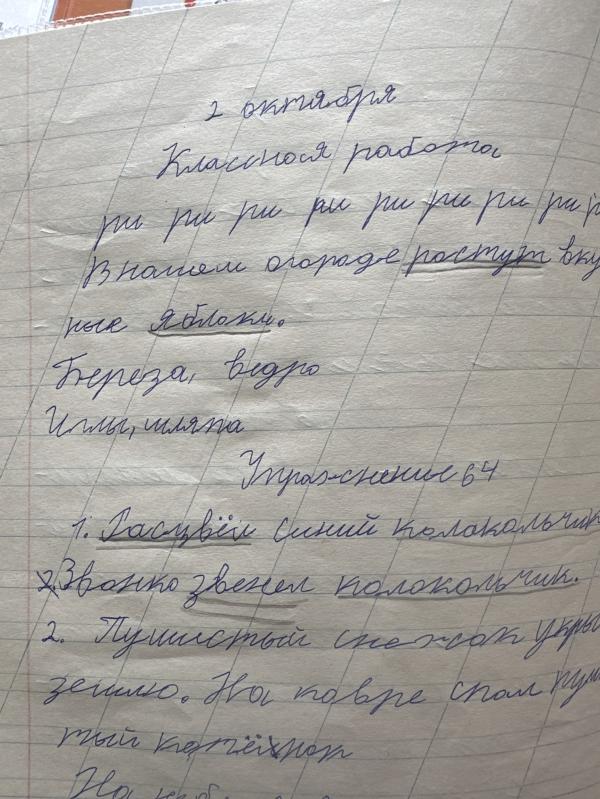 2 октября
Классная работа
ри ри ри ри ри ри ри ри р
В нашем огороде растут вку
ные яблоки.
Береза, ведро
Иглы, шляпа
Упражнение 64
1. Расцвёл синий колокольчик
2. Звонко звенел колокольчик.
2. Пушистый снежок укры
землю. На ковре спал пуши
тый котёнок
На